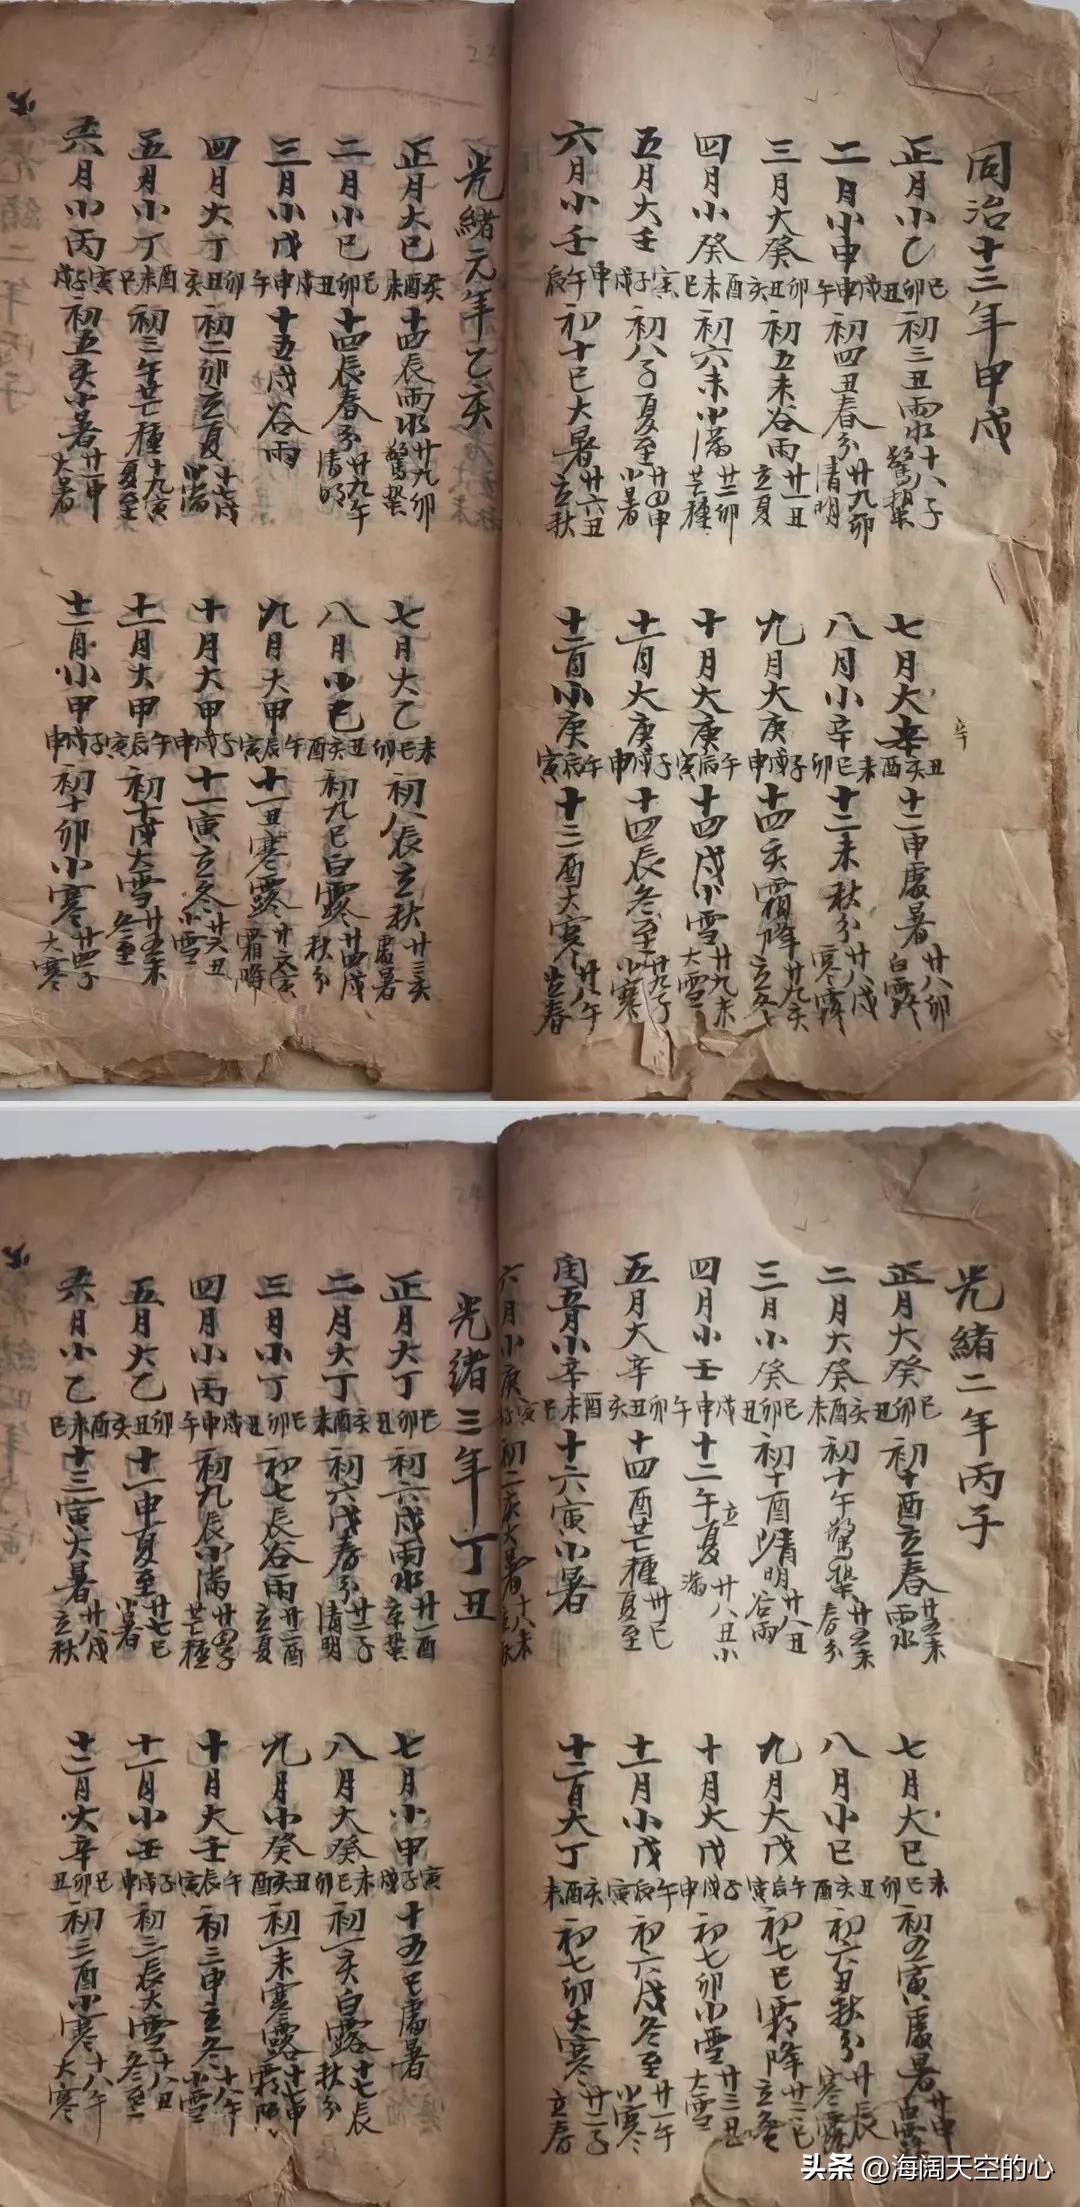 同治十三年甲戌
正月小乙巳卯丑初三丑雨水十八子驚蟄
二月小申戌申午初四丑春分廿九卯清明
三月大癸卯丑亥初五未谷雨廿一丑立夏
四月小癸酉未巳初六未小滿廿二卯芒種
五月大壬寅子戌初八子夏至廿四申小暑
六月小壬申午辰初十巳大暑廿六丑立秋
七月大辛丑亥酉十二申處暑廿八卯白露
辛
八月小辛未巳卯十二未秋分廿八戌寒露
九月大庚子戌申十四亥霜降廿九亥立冬
十月大庚午辰寅十四戌小雪廿九未大雪
十一月大庚子戌申十四辰冬至廿九子小寒
十二月小庚午辰寅十三酉大寒廿八午立春
光緒元年乙亥
正月大己亥酉未十四辰雨水廿九卯驚蟄
二月小己巳卯丑十四辰春分廿九午清明
三月小戊戌申午十五戌谷雨
四月大丁卯丑亥初二卯立夏十七戌小滿
五月小丁酉未巳初三午芒種十九寅夏至
六月小丙寅子戌初五亥小暑廿一申大暑
七月大乙未巳卯初八辰立秋廿三亥處暑
八月小乙丑亥酉初九巳白露廿四戌秋分
九月大甲午辰寅十一丑寒露廿六寅霜降
十月大甲子戌申十一寅立冬廿六丑小雪
十一月大甲午辰寅初十戌大雪廿五未冬至
十二月小甲子戌申初十卯小寒廿四子大寒
光緒二年丙子
正月大癸巳卯丑初十酉立春廿五未雨水
二月大癸亥酉未初十午驚蟄廿五未春分
三月小癸巳卯丑初十酉清明廿八丑谷雨
四月小壬戌申午十二午立夏廿八丑小滿
五月大辛卯丑亥十四酉芒種卅巳夏至
閏五月小辛酉未巳十六寅小暑
六月小庚寅子初二亥大暑十八未立秋
七月大己未巳卯初五寅處暑廿申白露
八月小己丑亥酉初六丑秋分廿辰寒露
九月大戊午辰寅初七巳霜降廿二巳立冬
十月大戊子戌申初七卯小雪廿三丑大雪
十一月小戊午辰寅初六戌冬至廿一午小寒
十二月大丁亥酉未初七卯大寒廿二子立春
光緒三年丁丑
正月大丁巳卯丑初六戌雨水廿一酉驚蟄
二月大丁亥酉未初六戌春分廿二子清明
三月小丁巳卯丑初七辰谷雨廿二酉立夏
四月小丙戌申午初九辰小滿廿四子芒種
五月大乙卯丑亥十一申夏至廿七巳小暑
六月小乙酉未巳十三寅大暑廿八戌立秋
七月小甲寅子戌十五巳處暑
八月大癸未巳卯初一亥白露十七辰秋分
九月小癸丑亥酉初一未寒露十七申霜降
十月大壬午辰寅初三申立冬十八午小雪
十一月小壬子戌申初二辰大雪十八丑冬至
十二月大辛巳卯丑初三酉小寒十八午大寒
头条 @海阔天空的心